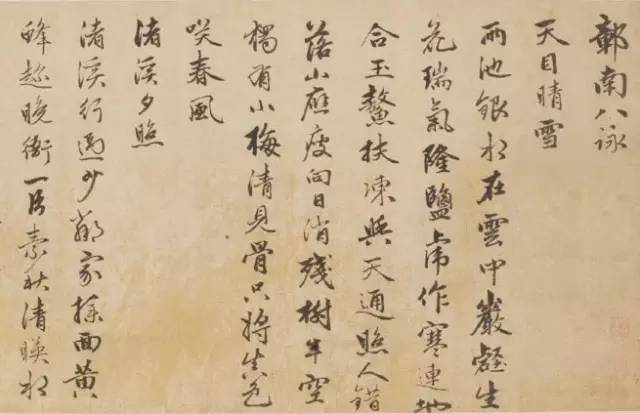 鄣南八詠
天目晴雪
兩池銀水在雲中巖壑生
花瑞氣隆鹽虎作寒連地
合玉鰲扶凍與天通照人錯
落山應瘦向日消殘樹半空
獨有小梅清見骨只將生色
咲春風
渚溪夕照
渚溪行過少鄰家採面黃
蜂趂晚衙一片素秋清暎水